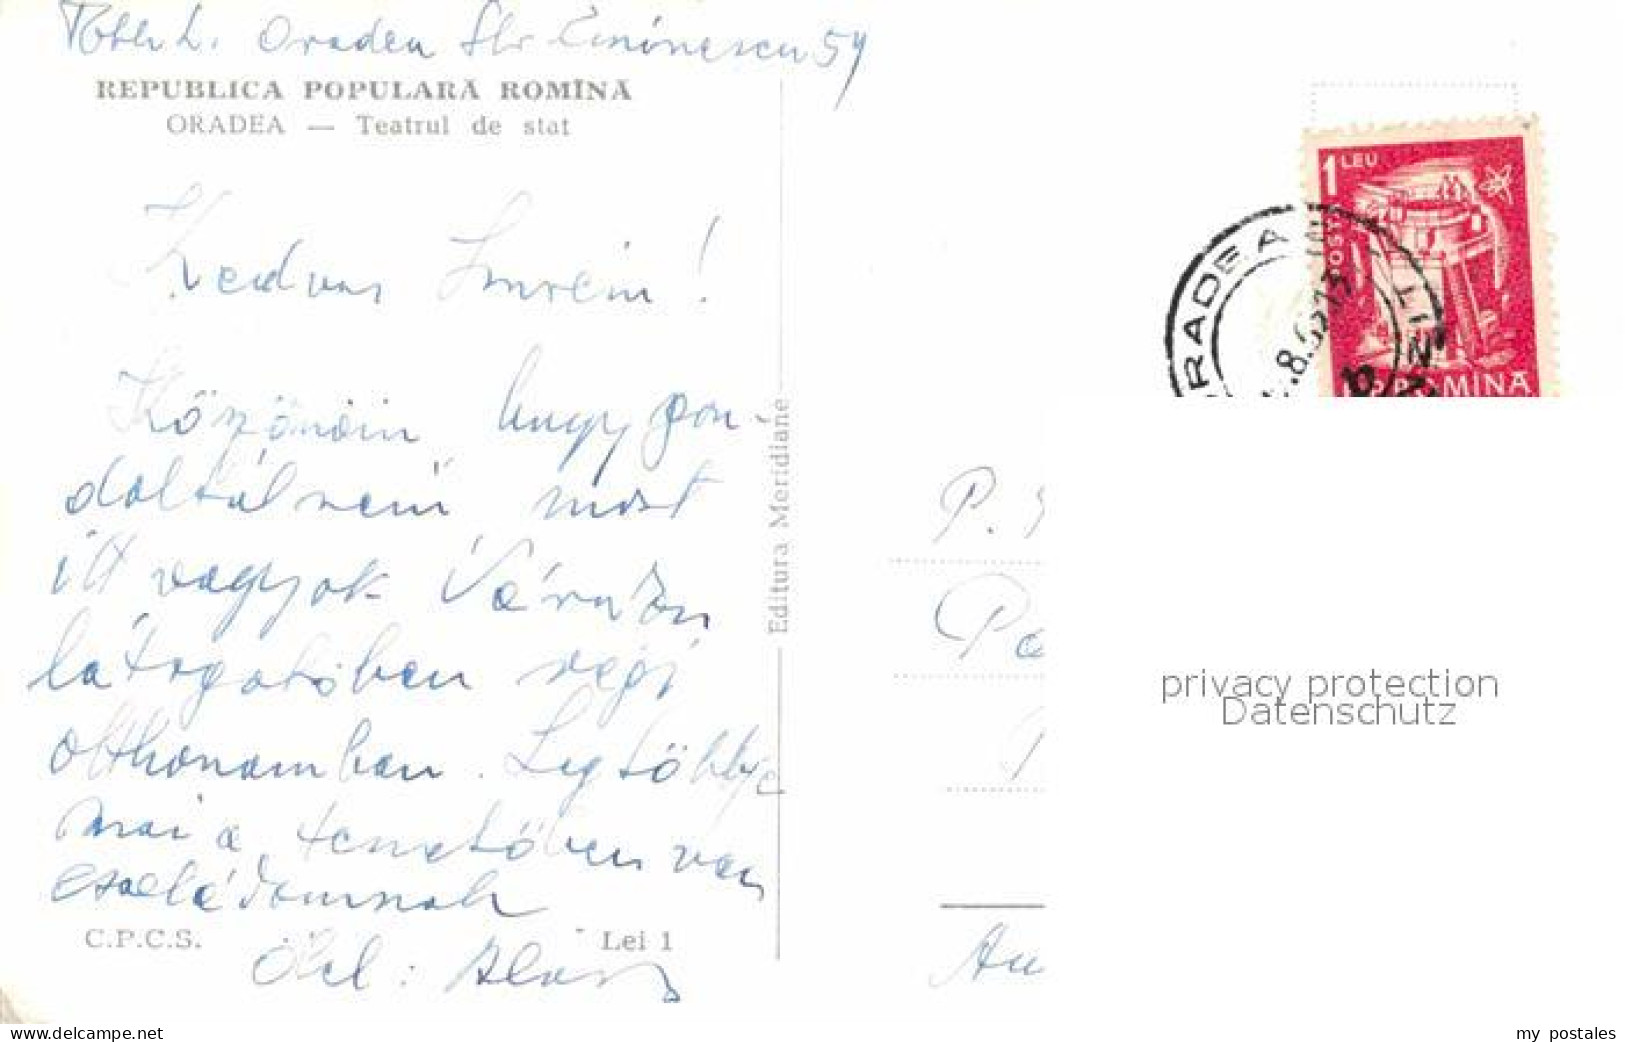 Toth L. Oradea Str Eminescu 54
REPUBLICA POPULARĂ ROMÎNĂ
ORADEA — Teatrul de stat
Kedves Imréim!
Köszönöm hogy gon-
doltál rám most
itt vagyok Váradon
látogatóben régi
otthonamban. Legtöbbje
mai a temetőben van
családomnak
C.P.C.S. Lei 1
Ölel:
Editura Meridiane
1 LEU
POSTA
R.P.ROMÎNĂ
ORADEA
P.
privacy protection
Datenschutz
Au
www.delcampe.net
my_postales